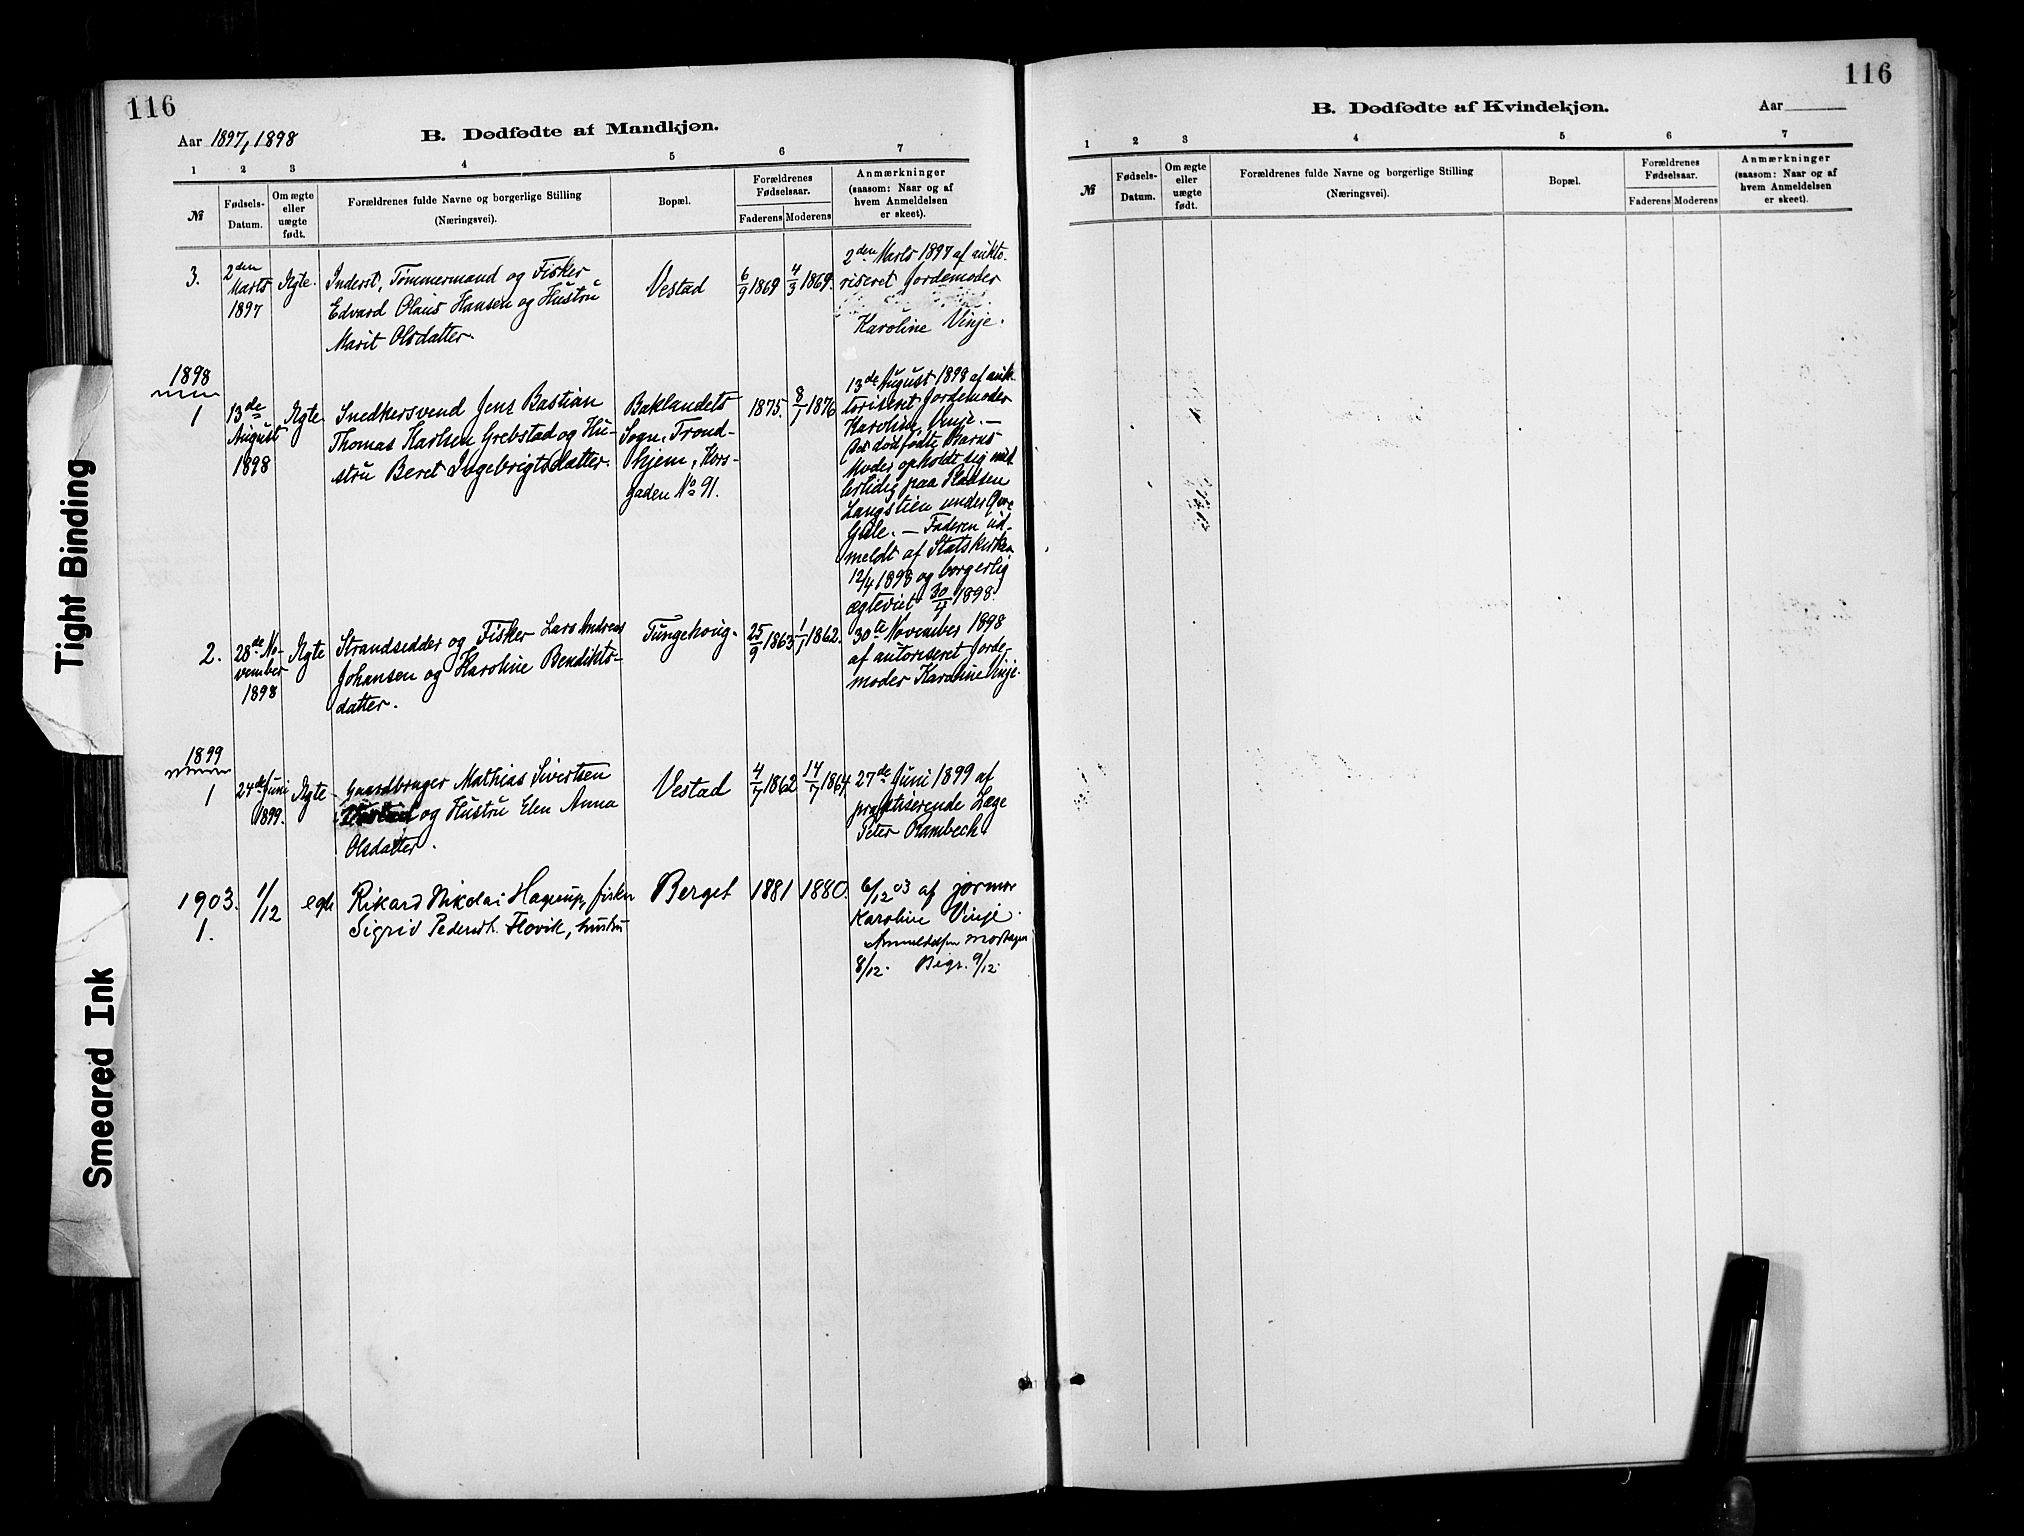 Tight Binding
Smeared Ink
116
Aar 1897, 1898
B. Dødfødte af Mandkjøn.
1 2 3 4 5 6 7
№
Fødsels-
Datum.
Om ægte
eller
uægte
født.
Forældrenes fulde Navne og borgerlige Stilling
(Næringsvei).
Bopæl.
Forældrenes
Fødselsaar.
Faderens Moderens
Anmærkninger
(saasom: Naar og af
hvem Anmeldelsen
er skeet).
3.
2den
Marts
1897
Ægte.
Inderst, Tømmermand og Fisker
Edvard Olaus Hansen og Hustru
Marit Olsdatter.
Vestad
6/9 1869
4/3 1869.
2den Marts 1897 af aukto-
riseret Jordemoder
Karoline Vinje.
1898
1
13de
August
1898
Ægte.
Snedkersvend Jens Bastian
Thomas Karlsen Grebstad og Hu-
stru Beret Ingebrigtsdatter.
Baklandets
Sogn, Trond-
hjem, Kors-
gaden No 91.
1875.
8/1 1876
13de August 1898 af auk-
toriseret Jordemoder
Karoline Vinje. —
Det dødfødte Barns
Moder opholdt sig mid-
lertidig paa Pladsen
Langstien under
— Faderen ud-
meldt af Statskirken
12/4 1898 og borgerlig
ægteviet 30/4 1898.
2.
28de No-
vember
1898
Ægte
Strandsidder og Fisker Lars Andreas
Johansen og Karoline Bendikts-
datter.
Tungehoug.
25/9 1863
1/1 1862.
30te November 1898
af autoriseret Jorde-
moder Karoline Vinje.
1899
1
24de Juni
1899.
Ægte
Gaardbruger Mathias Sivertsen
og Hustru Elen Anna
Olsdatter.
Vestad
4/7 1862
14/7 1864
27de Juni 1899 af
praktiserende Læge
Peter Rambech
1903.
1.
1/12
egte
Rikard Nikolai Hagerup, fisker
Sigrid Pedersdt. Flovik, hustru
Berget
1881
1880.
6/12 03 af jormor
Karoline Vinje.
Anmeldelsen mottagen
8/12. Begr. 9/12.
116
B. Dødfødte af Kvindekjøn.
Aar
1 2 3 4 5 6 7
№
Fødsels-
Datum.
Om ægte
eller
uægte
født.
Forældrenes fulde Navne og borgerlige Stilling
(Næringsvei).
Bopæl.
Forældrenes
Fødselsaar.
Faderens Moderens
Anmærkninger
(saasom: Naar og af
hvem Anmeldelsen
er skeet).